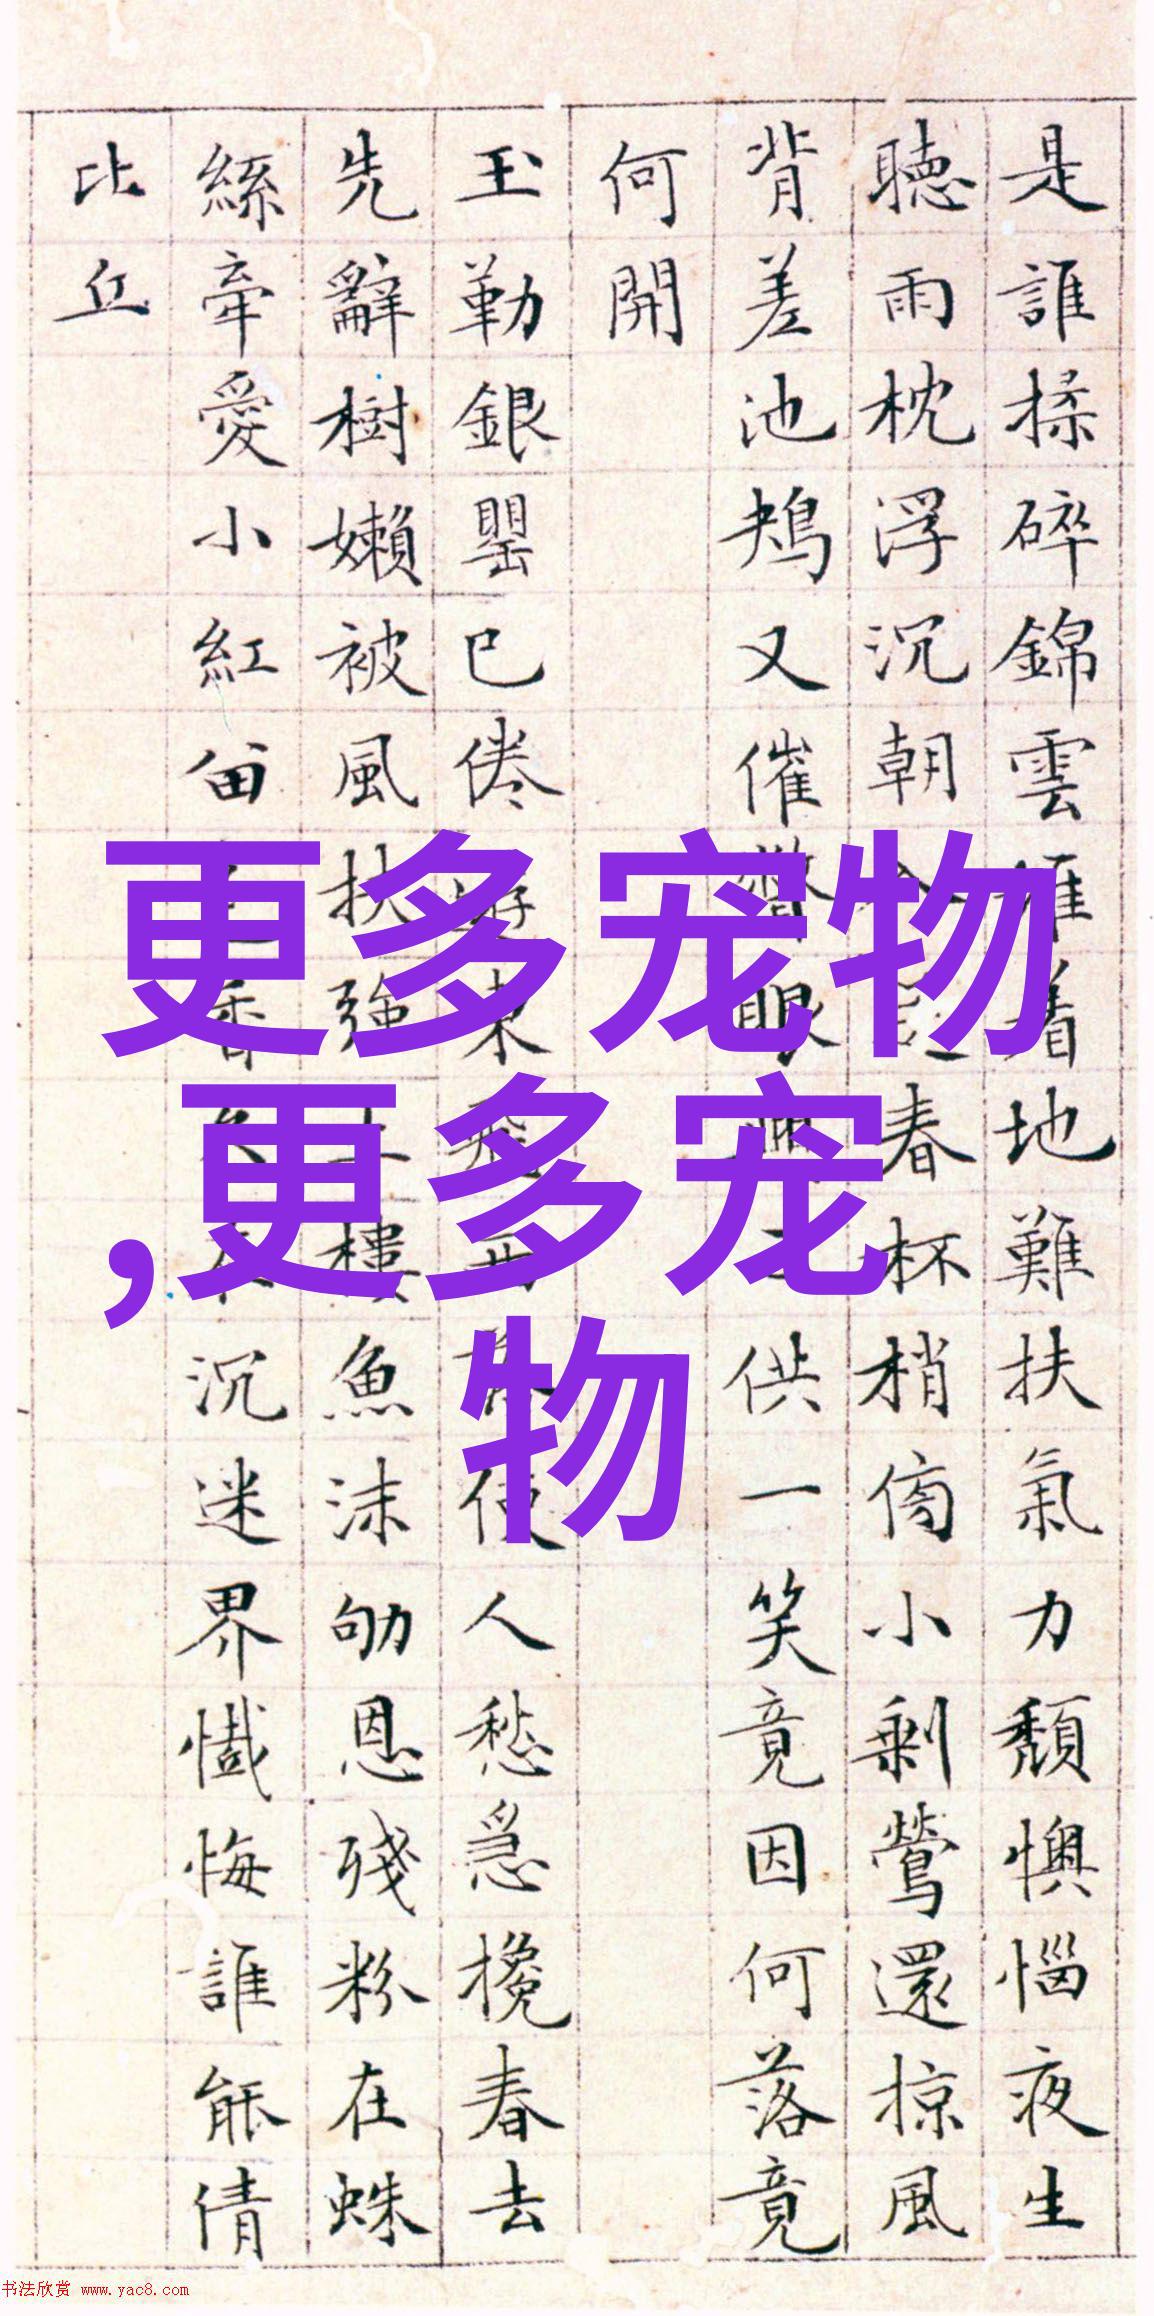 是誰揉碎錦雲堆着地難扶氣力頹懊惱夜生
聽雨枕浮沉朝春杯梢傍小剩鶯還掠風
背差池鳺又催眼供一笑竟因何落竟
何開
玉勒銀罌已倦游東人愁急攙春去
先辭樹嬾被風扶強上樓魚沫吻恩殘粉在蛛
絲牽愛小紅畱香沉迷界懺悔誰能倩
比丘
更多宠物
,更多宠
物
书法欣赏 www.yac8.com